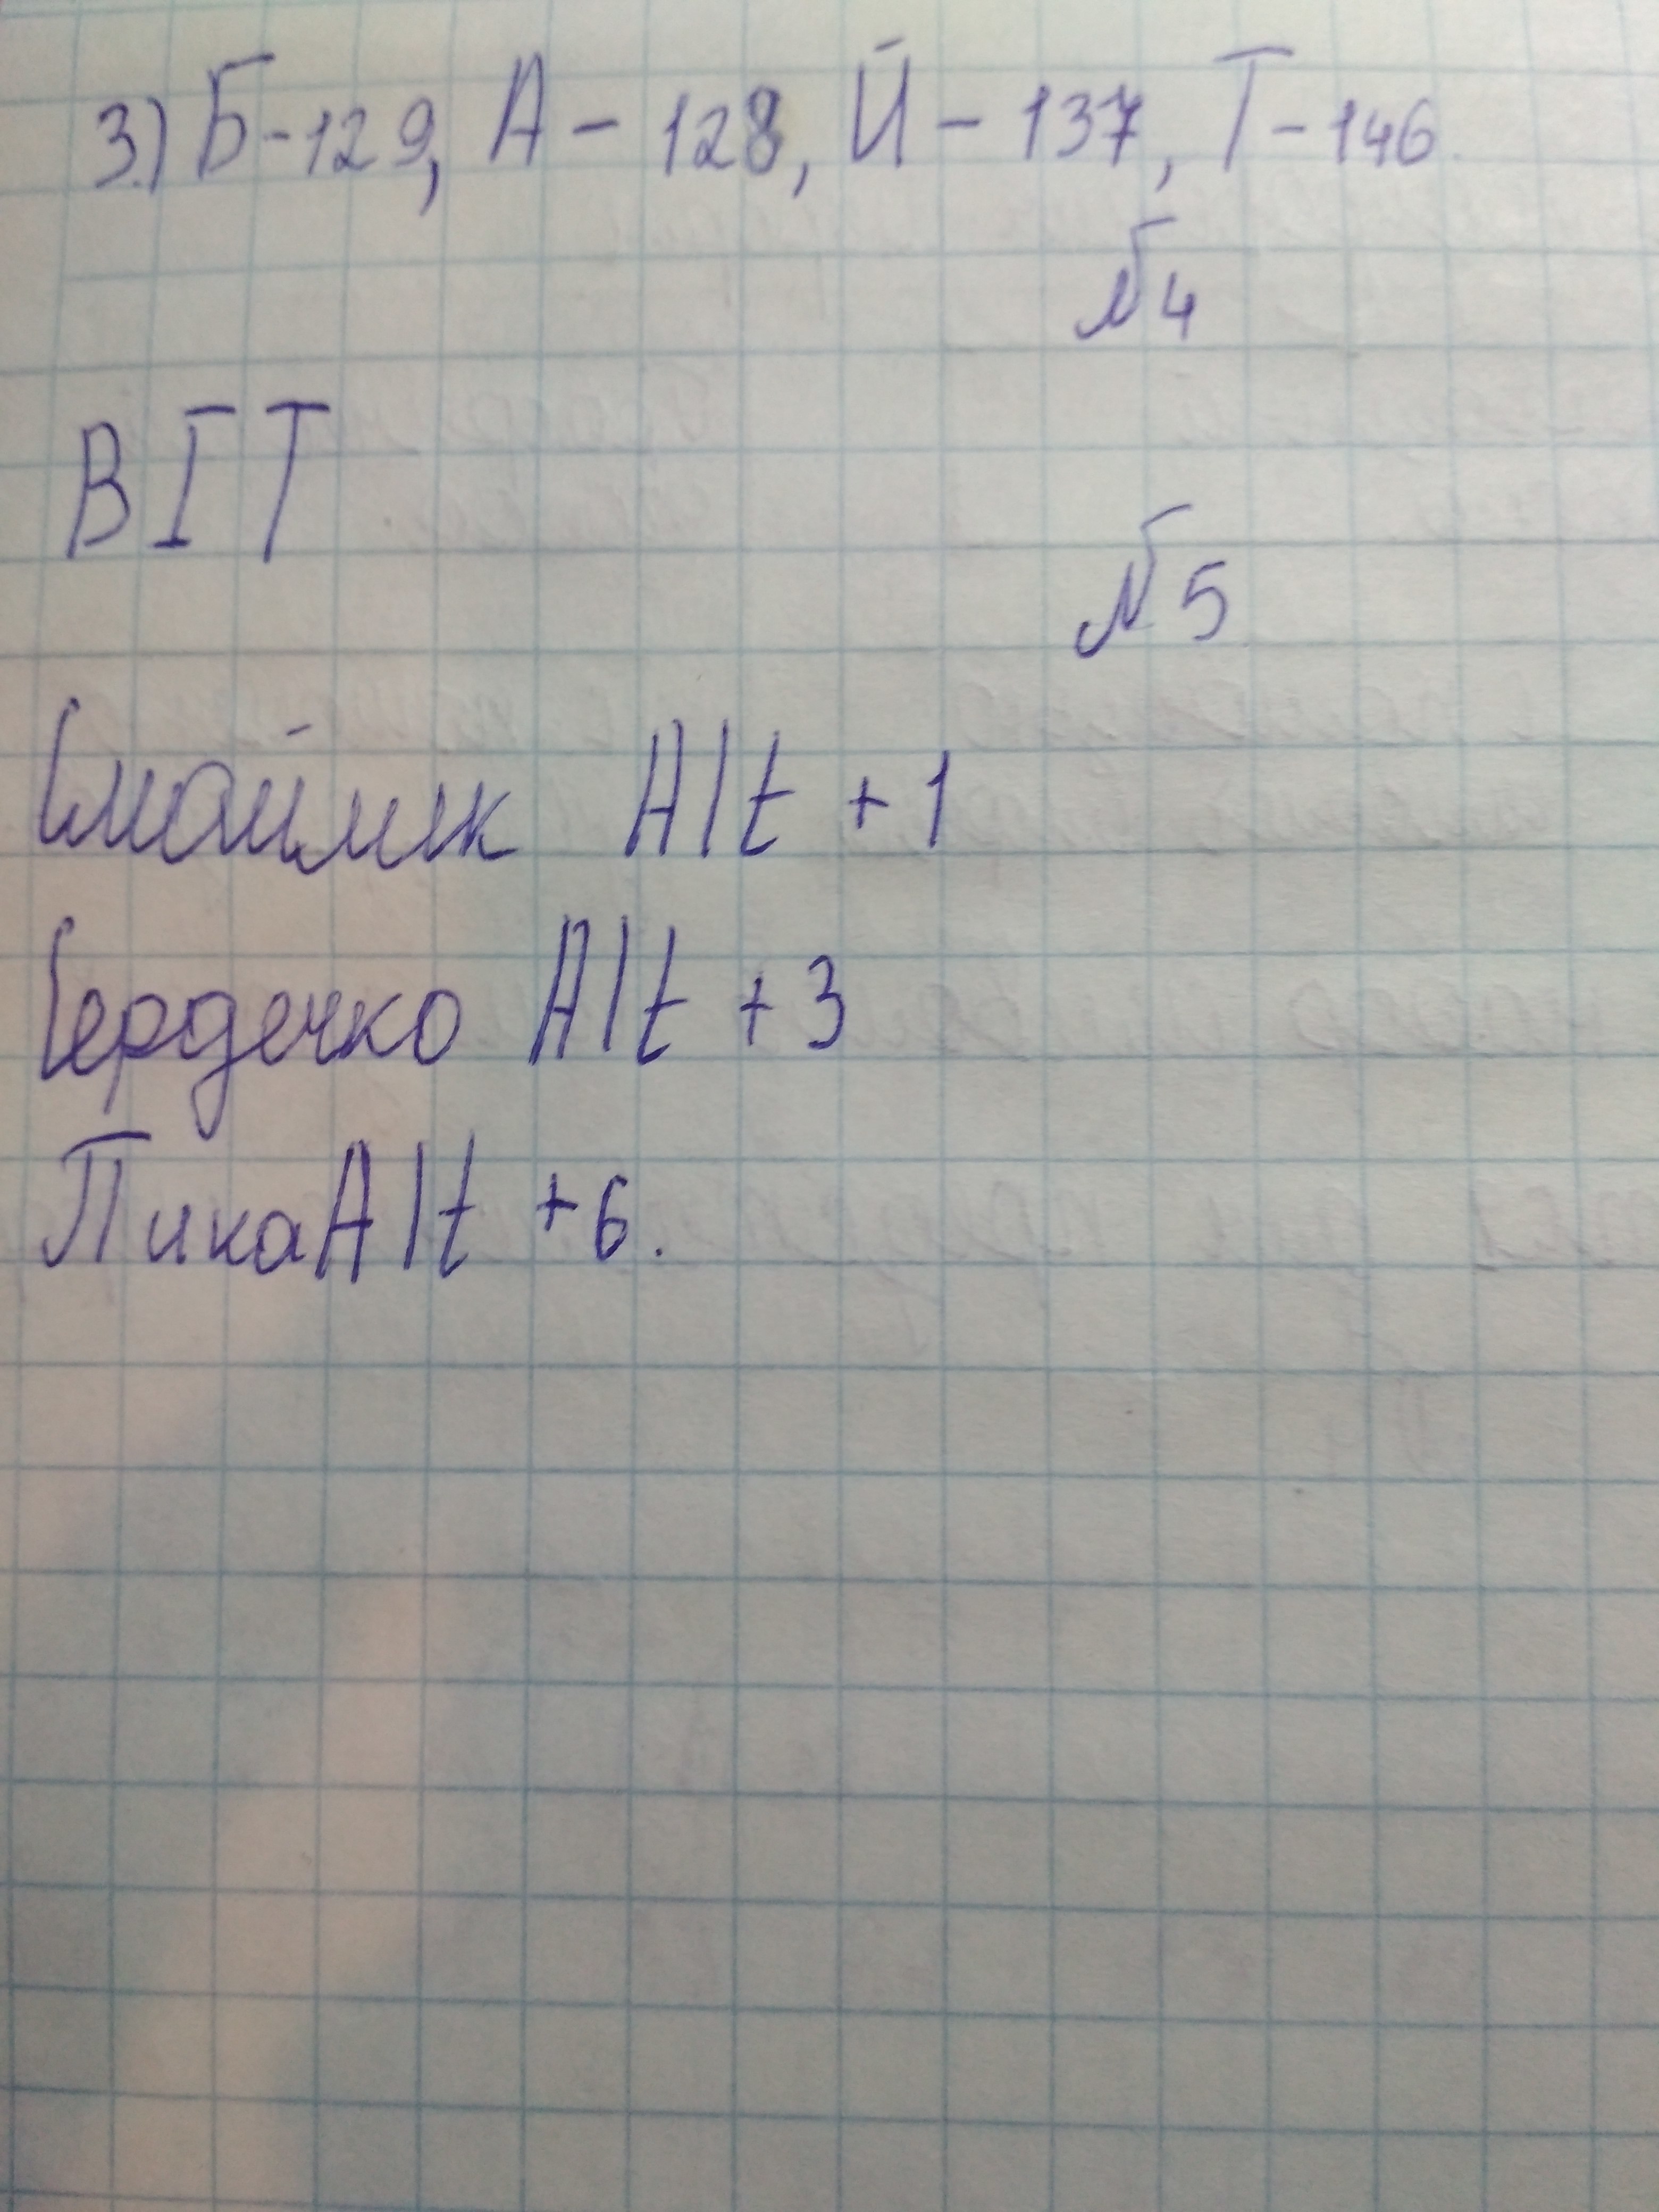 3.) Б-129, А - 128, Й - 137, Т - 146.
№4
BIT
№5
Смайлик Alt + 1
Сердечко Alt + 3
Пика Alt + 6.